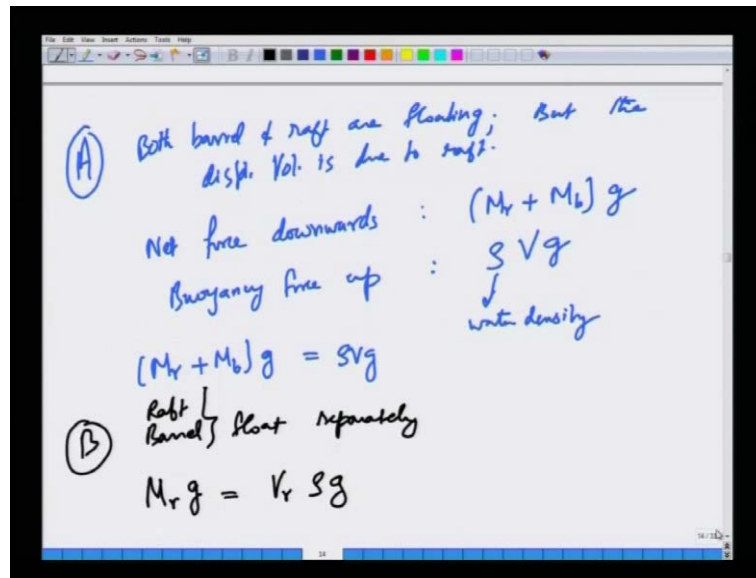 File Edit View Insert Actions Tools Help
B I
A Both barrel & raft are floating; But the
displ. Vol. is due to raft.
Net force downwards : (Mr + Mb) g
Buoyancy force up : ρ V g
water density
(Mr + Mb) g = ρVg
B Raft
Barrel } float separately
Mr g = Vr ρg
14